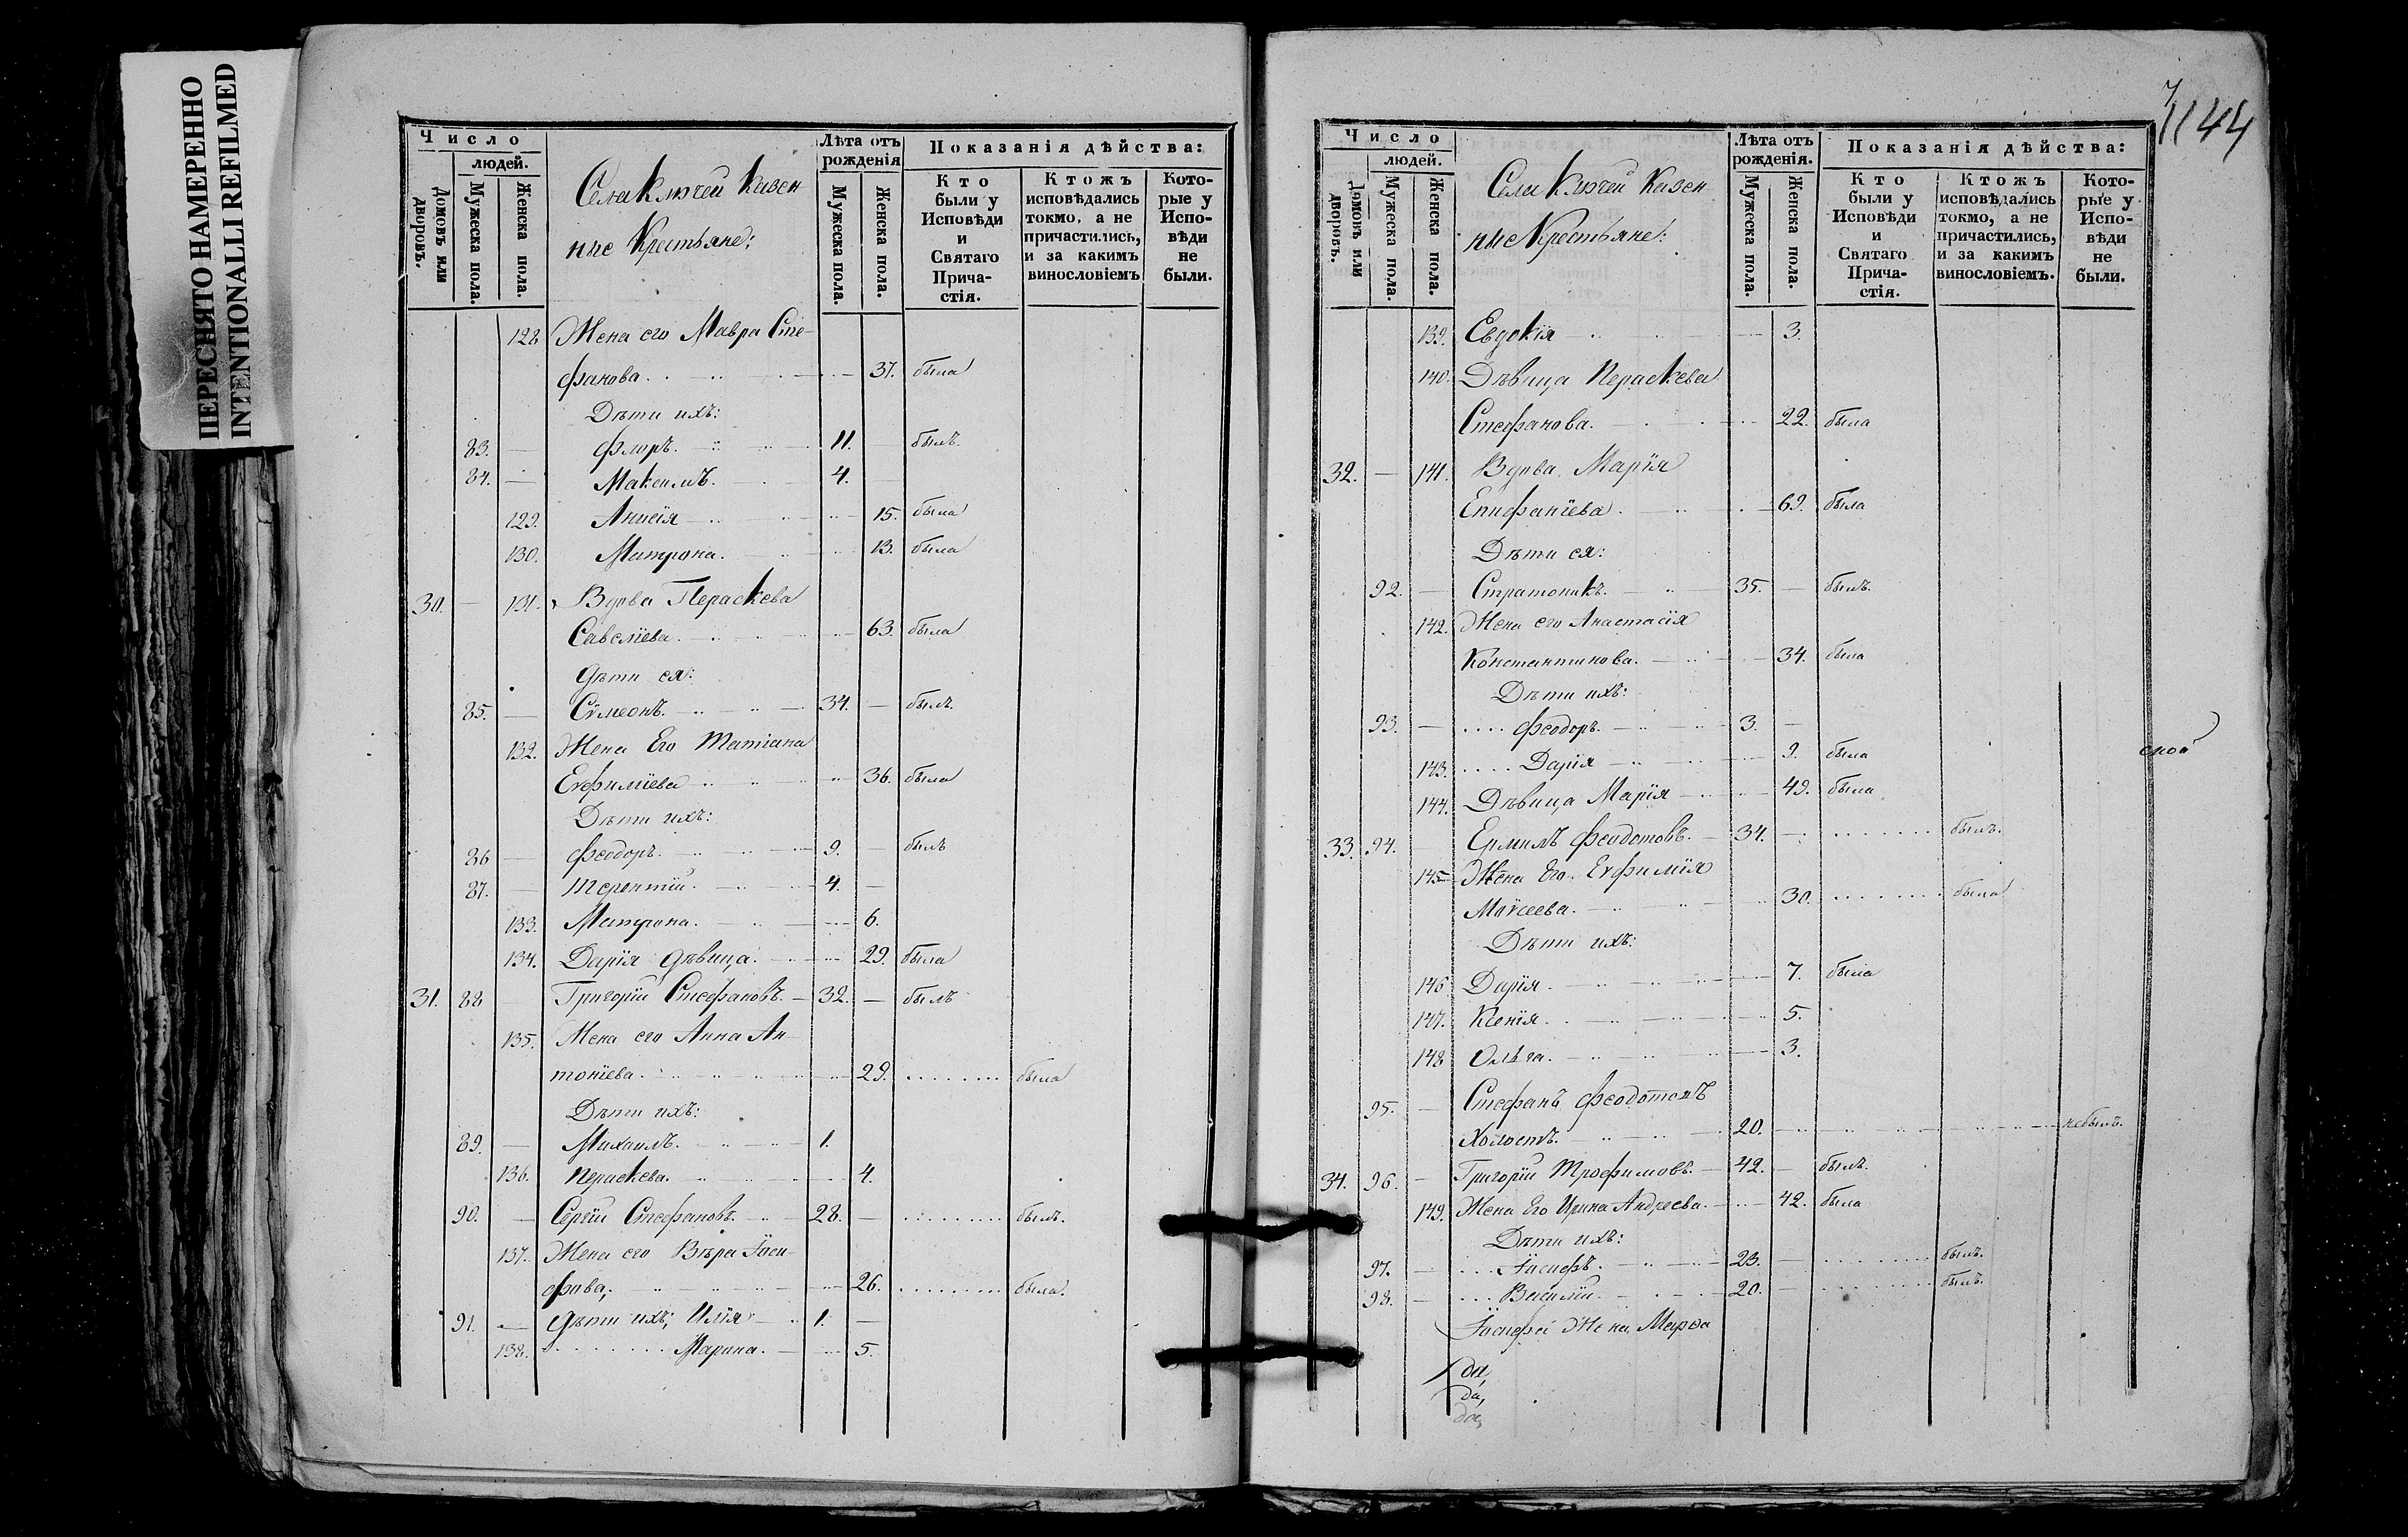 ПЕРЕСНЯТО НАМЕРЕННО
INTENTIONALLI REFILMED
Число
людей.
Домовъ или дворовъ.
Мужеска пола.
Женска пола.
Села Ключей Казен
ные Крестьяне:
Лѣта отъ рожденія
Мужеска пола.
Женска пола.
Показанія дѣйства:
Кто были у Исповѣди и Святаго Прича-стія.
Ктожъ исповѣдались токмо, а не причастились, и за какимъ винословіемъ
Кото-рые у Испо-вѣди не были.
128 Жена его Мавра Сте-
фанова. 37. была
Дѣти ихъ:
83. Флоръ. 11. былъ.
84. Максимъ. 4.
129. Анисія 15. была
130. Матрона. 13. была
30. 131. Вдова Параскева
Савелїева. 63. была
Дѣти ея:
85. Сѵмеонъ. 34. былъ.
132. Жена Его Татіана
Евфимїева 36. была
Дѣти ихъ:
86 Феодоръ. 9. былъ
87. Терентїй. 4.
133. Матрона. 6.
134. Дарїя дѣвица. 29. была
31. 88 Григорїй Стефановъ. 32. былъ
135. Жена его Анна Ан-
тонїева. 29. была
Дѣти ихъ:
89. Михаилъ. 1.
136. Параскева. 4.
90. Сергїй Стефановъ. 28. былъ.
137. Жена его Вѣра Іоси-
фова, 26. была.
91. Дѣти ихъ; Илїя 1.
138. Марина. 5.
7
1144
Число
людей.
Домовъ или дворовъ.
Мужеска пола.
Женска пола.
Села Ключей Казен
ные Крестьяне:
Лѣта отъ рожденія.
Мужеска пола.
Женска пола.
Показанія дѣйства:
Кто были у Исповѣди и Святаго Прича-стія.
Ктожъ исповѣдались токмо, а не причастились, и за какимъ винословіемъ.
Кото-рые у Испо-вѣди не были.
139. Евдокїя 3.
140. Дѣвица Параскева
Стефанова. 22. была
32. 141. Вдова Марїя
Епифанїева. 69. была
Дѣти ея:
92. Стратоникъ. 35. былъ.
142. Жена его Анастасїя
Константинова. 34. была
Дѣти ихъ:
93. Феодоръ. 3.
143. Дарїя 9. была
144. Дѣвица Марїя 49. была
33. 94. Ермилъ Феодотовъ. 34. былъ.
145 Жена Его Евфимїя
Моѵсеева. 30. была
Дѣти ихъ:
146 Дарїя. 7. была
147. Ксенїя. 5.
148 Ольга. 3.
95. Стефанъ Феодотовъ
Холостъ. 20. небылъ.
34. 96. Григорїй Трофимовъ. 42. былъ.
149. Жена Его Ирина Андреева. 42. была
Дѣти ихъ:
97. Іосифъ. 23. былъ.
98. Василїй. 20. былъ.
Іосифа Жена Марѳа
да,
да,
да,